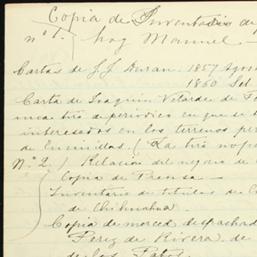 Copia de Inventario de
n° 1. hoy Manuel —
Cartas de J. J. Duran. 1857 Agos
1860 Set
Carta de Joaquin Velarde de
una tira de periodico en que se
interesados en los terrenos per
de Encinillas. (La tira no fe
N° 2.) Relacion del negocio de
Copia de Prensa —
Inventario de titulos de C
de Chihuahua
Copia de merced despachad
Perez de Rivera, de
de los Patos.